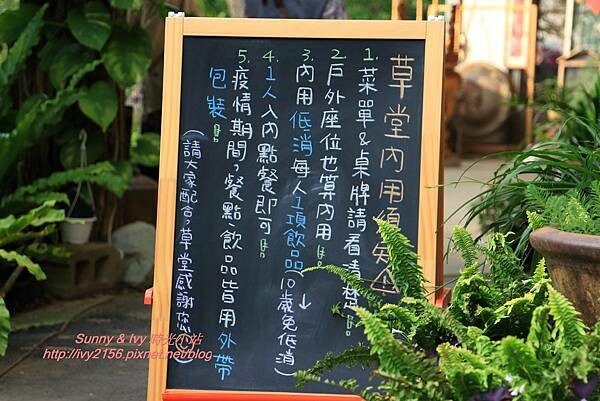 草堂內用須知⚠
1. 菜單&桌牌請看清楚。
2. 戶外座位也算內用。
3. 內用低消每人1項飲品(10歲↓免低消)
4. 1人入內點餐即可。
5. 疫情期間,餐點飲品皆用外帶
包裝。
(請大家配合,草堂感謝您
Sunny & Ivy 時光小站
http://ivy2156.pixnet.net/blog